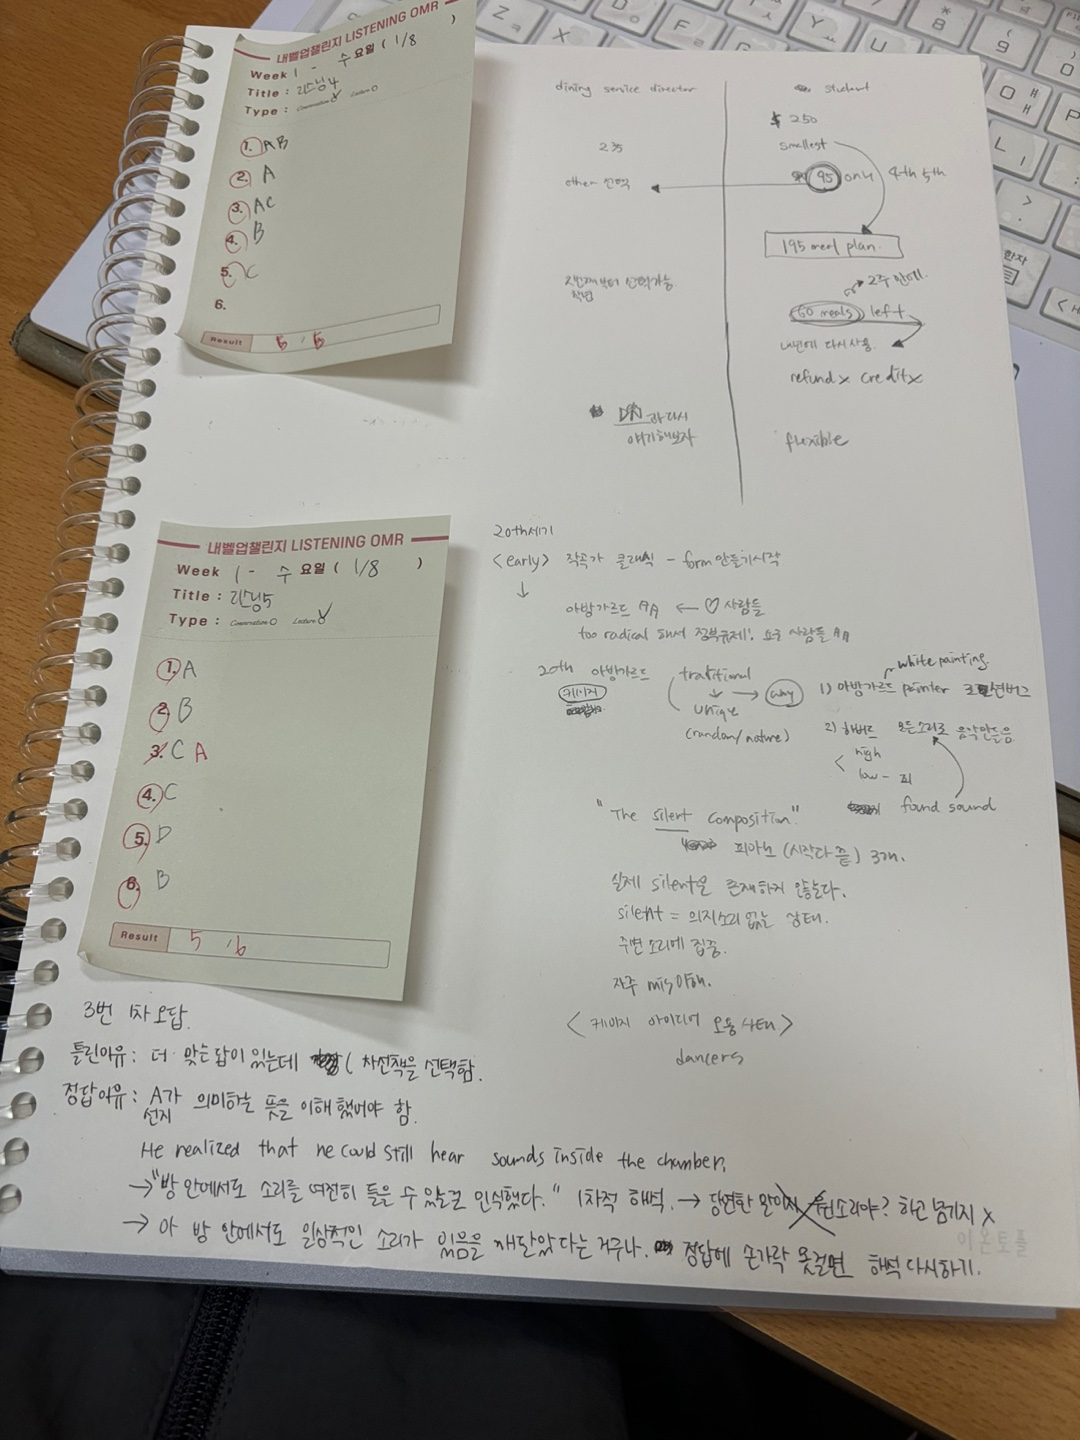 내벨업챌린지 LISTENING OMR
Week 1 - 수 요일 ( 1/8 )
Title : 리스닝4
Type : Conversation Lecture
1. A B
2. A
3. AC
4. B
5. C
6.
Result 5 / 5
dining service director
student
$ 250
smallest
other 선택
95 only 4th 5th
195 meal plan.
2주 만에.
50 meals left
refund x credit x
얘기해보자
flexible
내벨업챌린지 LISTENING OMR
Week 1 - 수 요일 ( 1/8 )
Title : 리스닝5
Type : Conversation Lecture
1. A
2. B
3. C A
4. C
5. D
6. B
Result 5 / 6
20th세기
<early> 작곡가 클래식 - form 만들기 시작
아방가르드 ← ♡ 사람들
too radical 해서 정부규제!
20th 아방가르드
케이지
traditional
unique
(random/nature)
why
white painting.
1) 아방가르드 painter
2) 하버드 모든소리로 음악만듦
high
low -
found sound
"The silent composition"
피아노 (시작다 끝) 3개.
실제 silent은 존재하지 않는다.
silent = 의지소리 없는 상태.
주변 소리에 집중.
자주 mis이해.
<케이지 아이디어 사태>
dancers
3번 1차 오답.
틀린이유: 더 맞는 답이 있는데 차선책을 선택함.
정답이유: A가 의미하는 뜻을 이해 했어야 함.
선지
He realized that he could still hear sounds inside the chamber.
→ "방 안에서도 소리를 여전히 들을 수 있는걸 인식했다." 1차적 해석. → 당연한 소리야? 하고 넘기지 X
→ 아 방 안에서도 일상적인 소리가 있음을 깨달았다는 거구나. 정답에 손가락 못걸면 해석 다시하기.
이온토플